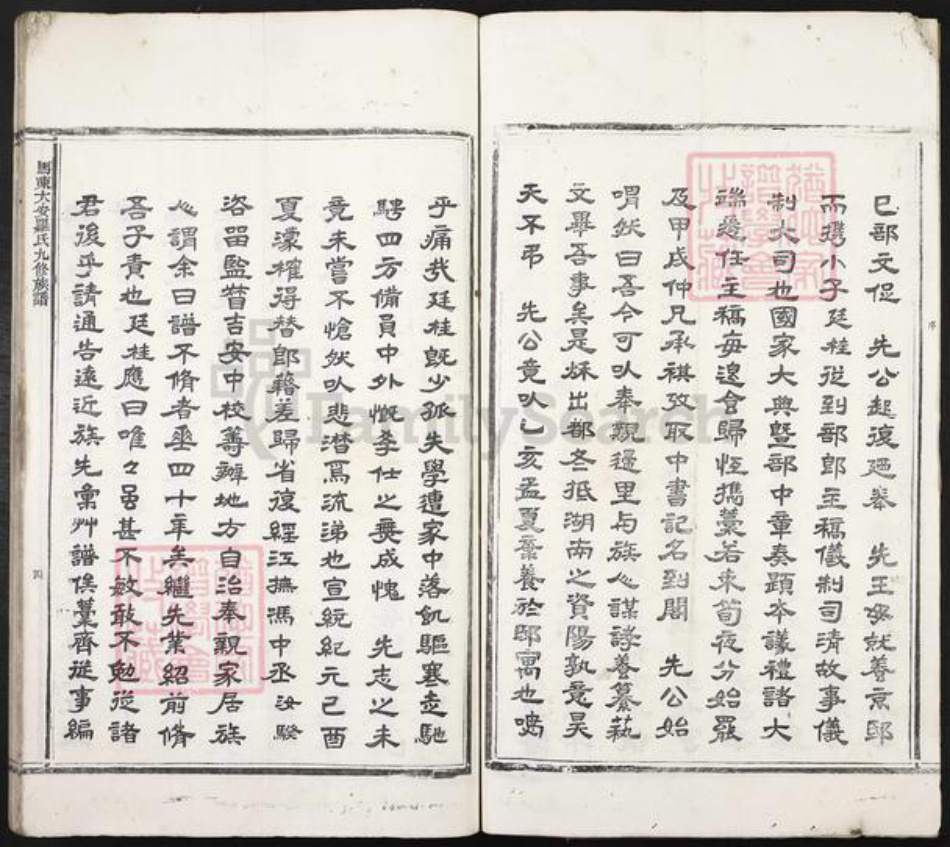 已部文促　先公起復廼奉　先王母就養京邸
而攜小子廷桂從到部郎主稿儀制司清故事儀
制大司也國家大典暨部中章奏題本議禮諸大
端遴任主稿每退食歸恆攜藁若束筍夜分始罷
及甲戌仲兄承祺攷取中書記名到閣　先公始
喟然曰吾今可以奉親還里与族人謀譜養纂執
文畢吾事矣是秌出都冬抵湖南之資陽孰意昊
天不弔　先公竟以乙亥孟夏棄養於邸寓也嗚
序
乎痛哉廷桂旣少孤失學遭家中落飢驅蹇走馳
騁四方備員中外慨學仕之無成愧　先志之未
竟未嘗不愴然以悲潸焉流涕也宣統紀元己酉
夏濛榷得替郎籍差歸省復經江撫馮中丞汝騤
咨留監督吉安中校籌辦地方自治奉親家居族
人謂余曰譜不脩者垂四十年矣繼先業紹前脩
吾子責也廷桂應曰唯々吾甚不敏敢不勉從諸
君後乎請通告遠近族先彙艸譜俟藁齊從事編
馬東大安羅氏九修族譜
四
FamilySearch